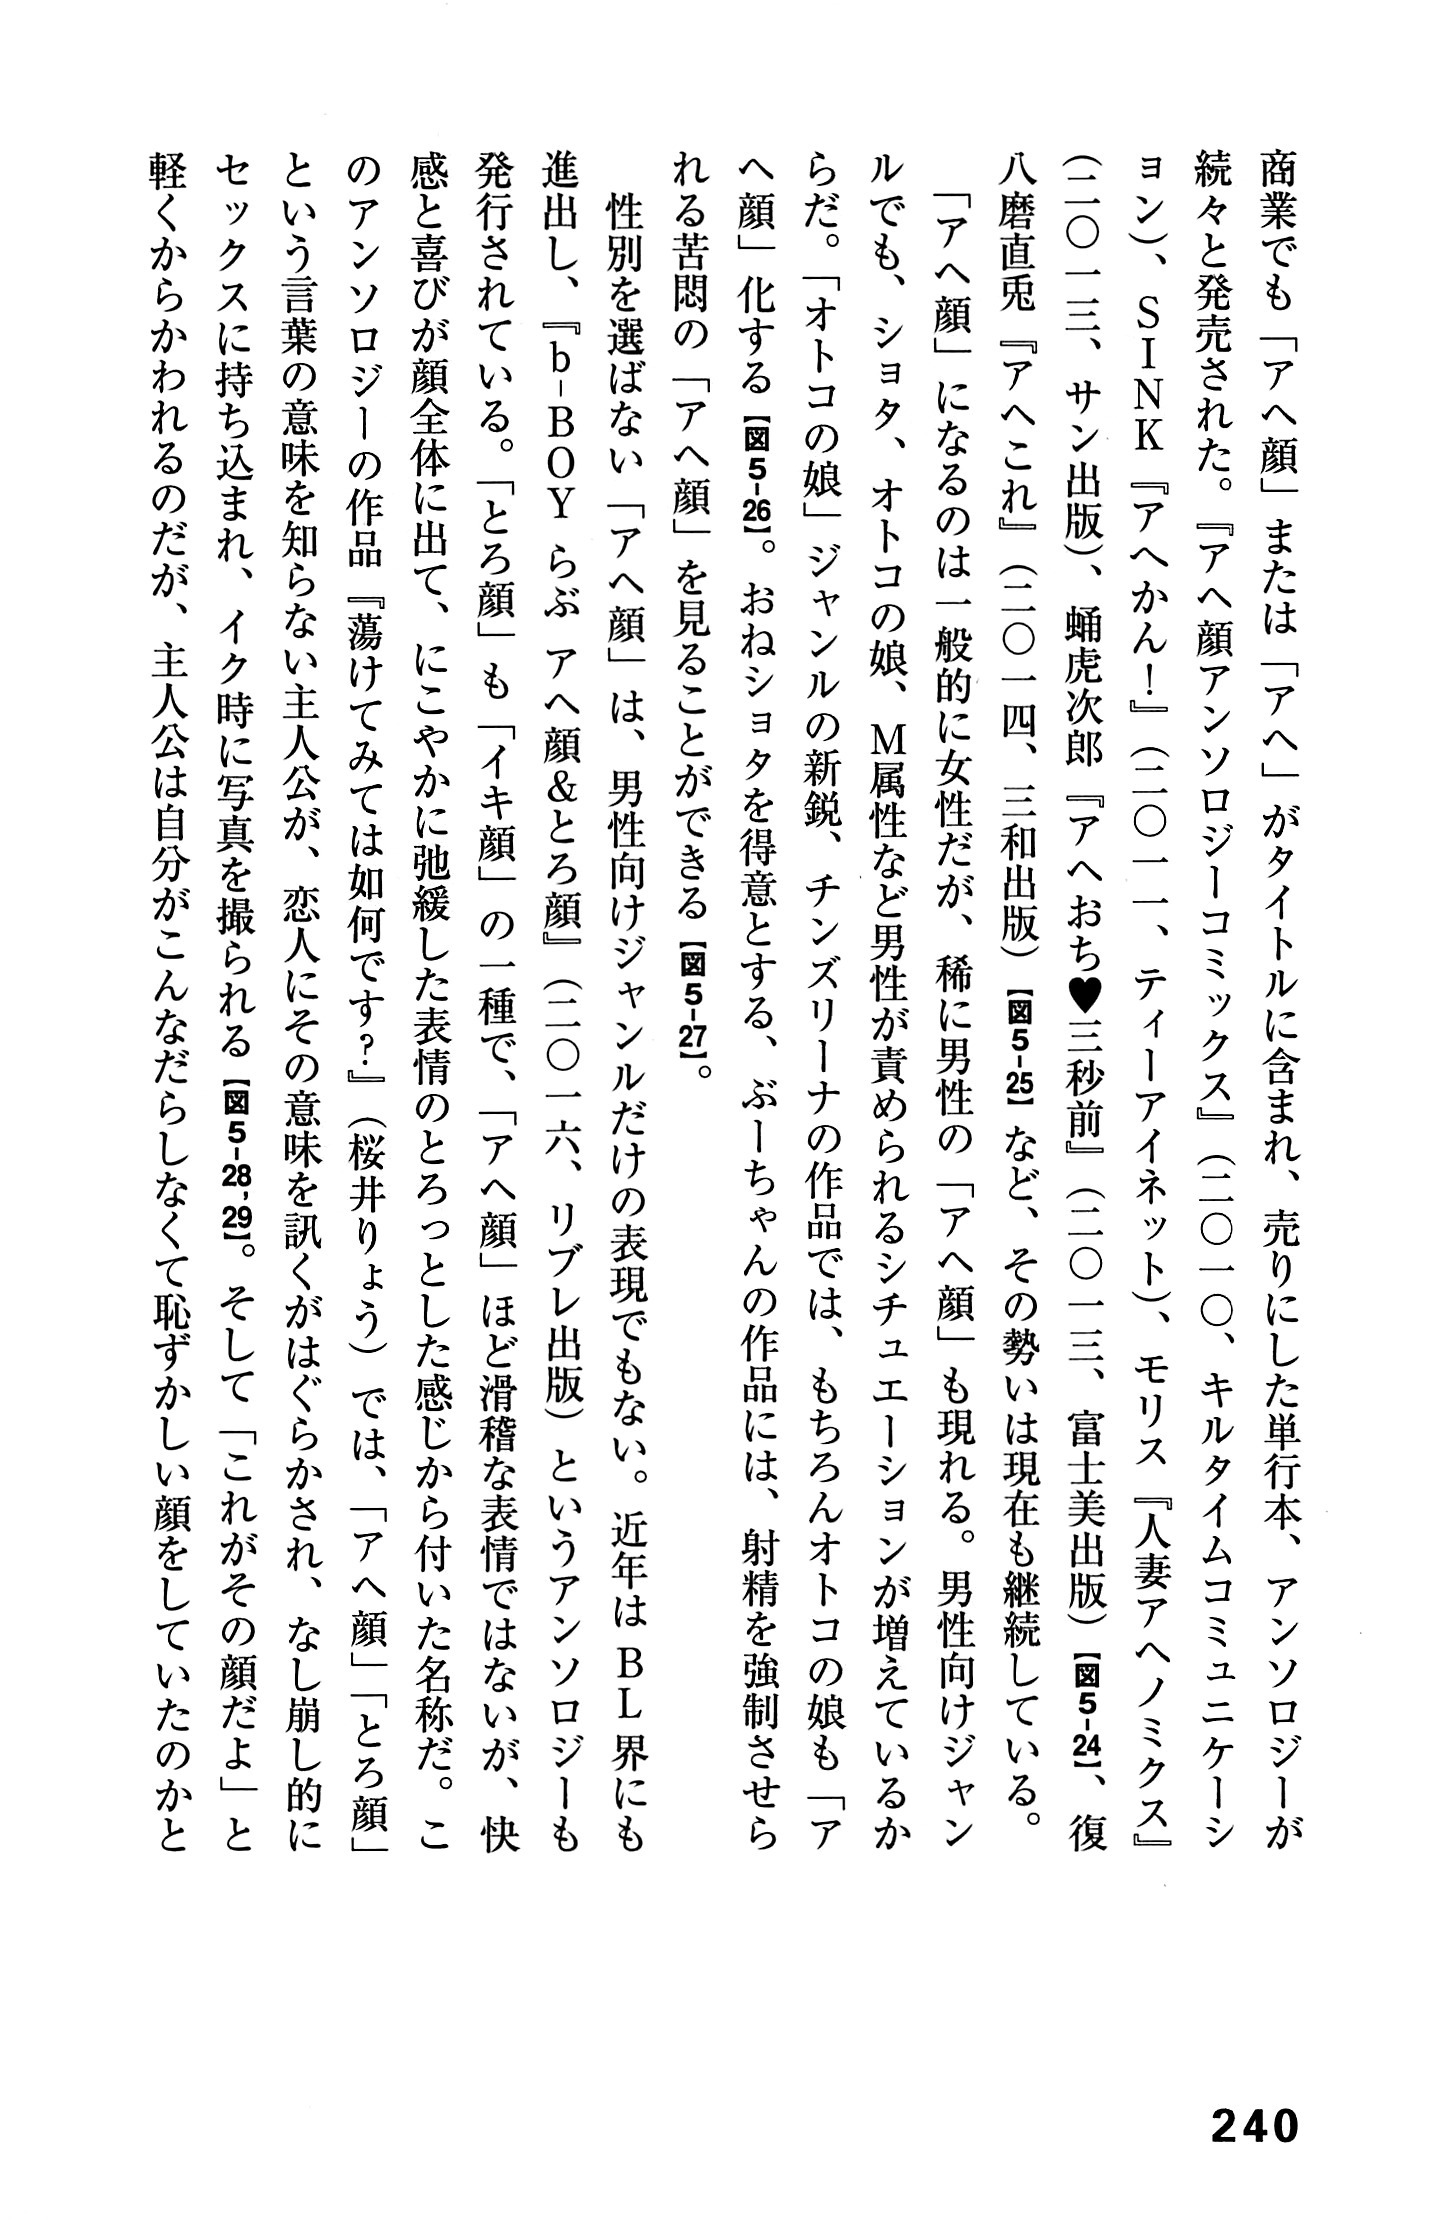 商業でも「アヘ顔」または「アヘ」がタイトルに含まれ、売りにした単行本、アンソロジーが
続々と発売された。『アヘ顔アンソロジーコミックス』（二〇一〇、キルタイムコミュニケーシ
ョン）、ＳＩＮＫ『アヘかん！』（二〇一一、ティーアイネット）、モリス『人妻アヘノミクス』
（二〇一三、サン出版）、蛹虎次郎『アヘおち♥三秒前』（二〇一三、富士美出版）【図5-24】、復
八磨直兎『アヘこれ』（二〇一四、三和出版）【図5-25】など、その勢いは現在も継続している。
「アヘ顔」になるのは一般的に女性だが、稀に男性の「アヘ顔」も現れる。男性向けジャン
ルでも、ショタ、オトコの娘、Ｍ属性など男性が責められるシチュエーションが増えているか
らだ。「オトコの娘」ジャンルの新鋭、チンズリーナの作品では、もちろんオトコの娘も「ア
ヘ顔」化する【図5-26】。おねショタを得意とする、ぶーちゃんの作品には、射精を強制させら
れる苦悶の「アヘ顔」を見ることができる【図5-27】。
性別を選ばない「アヘ顔」は、男性向けジャンルだけの表現でもない。近年はＢＬ界にも
進出し、『ｂ-ＢＯＹらぶ アヘ顔&とろ顔』（二〇一六、リブレ出版）というアンソロジーも
発行されている。「とろ顔」も「イキ顔」の一種で、「アヘ顔」ほど滑稽な表情ではないが、快
感と喜びが顔全体に出て、にこやかに弛緩した表情のとろっとした感じから付いた名称だ。こ
のアンソロジーの作品『蕩けてみては如何です？』（桜井りょう）では、「アヘ顔」「とろ顔」
という言葉の意味を知らない主人公が、恋人にその意味を訊くがはぐらかされ、なし崩し的に
セックスに持ち込まれ、イク時に写真を撮られる【図5-28,29】。そして「これがその顔だよ」と
軽くからかわれるのだが、主人公は自分がこんなだらしなくて恥ずかしい顔をしていたのかと
240